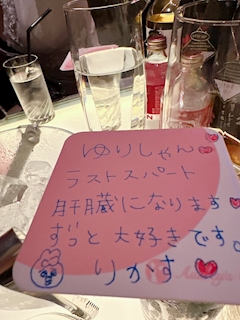 ゆりしゃん
ラストスパート
肝臓になります
ずっと大好きです。
りかす